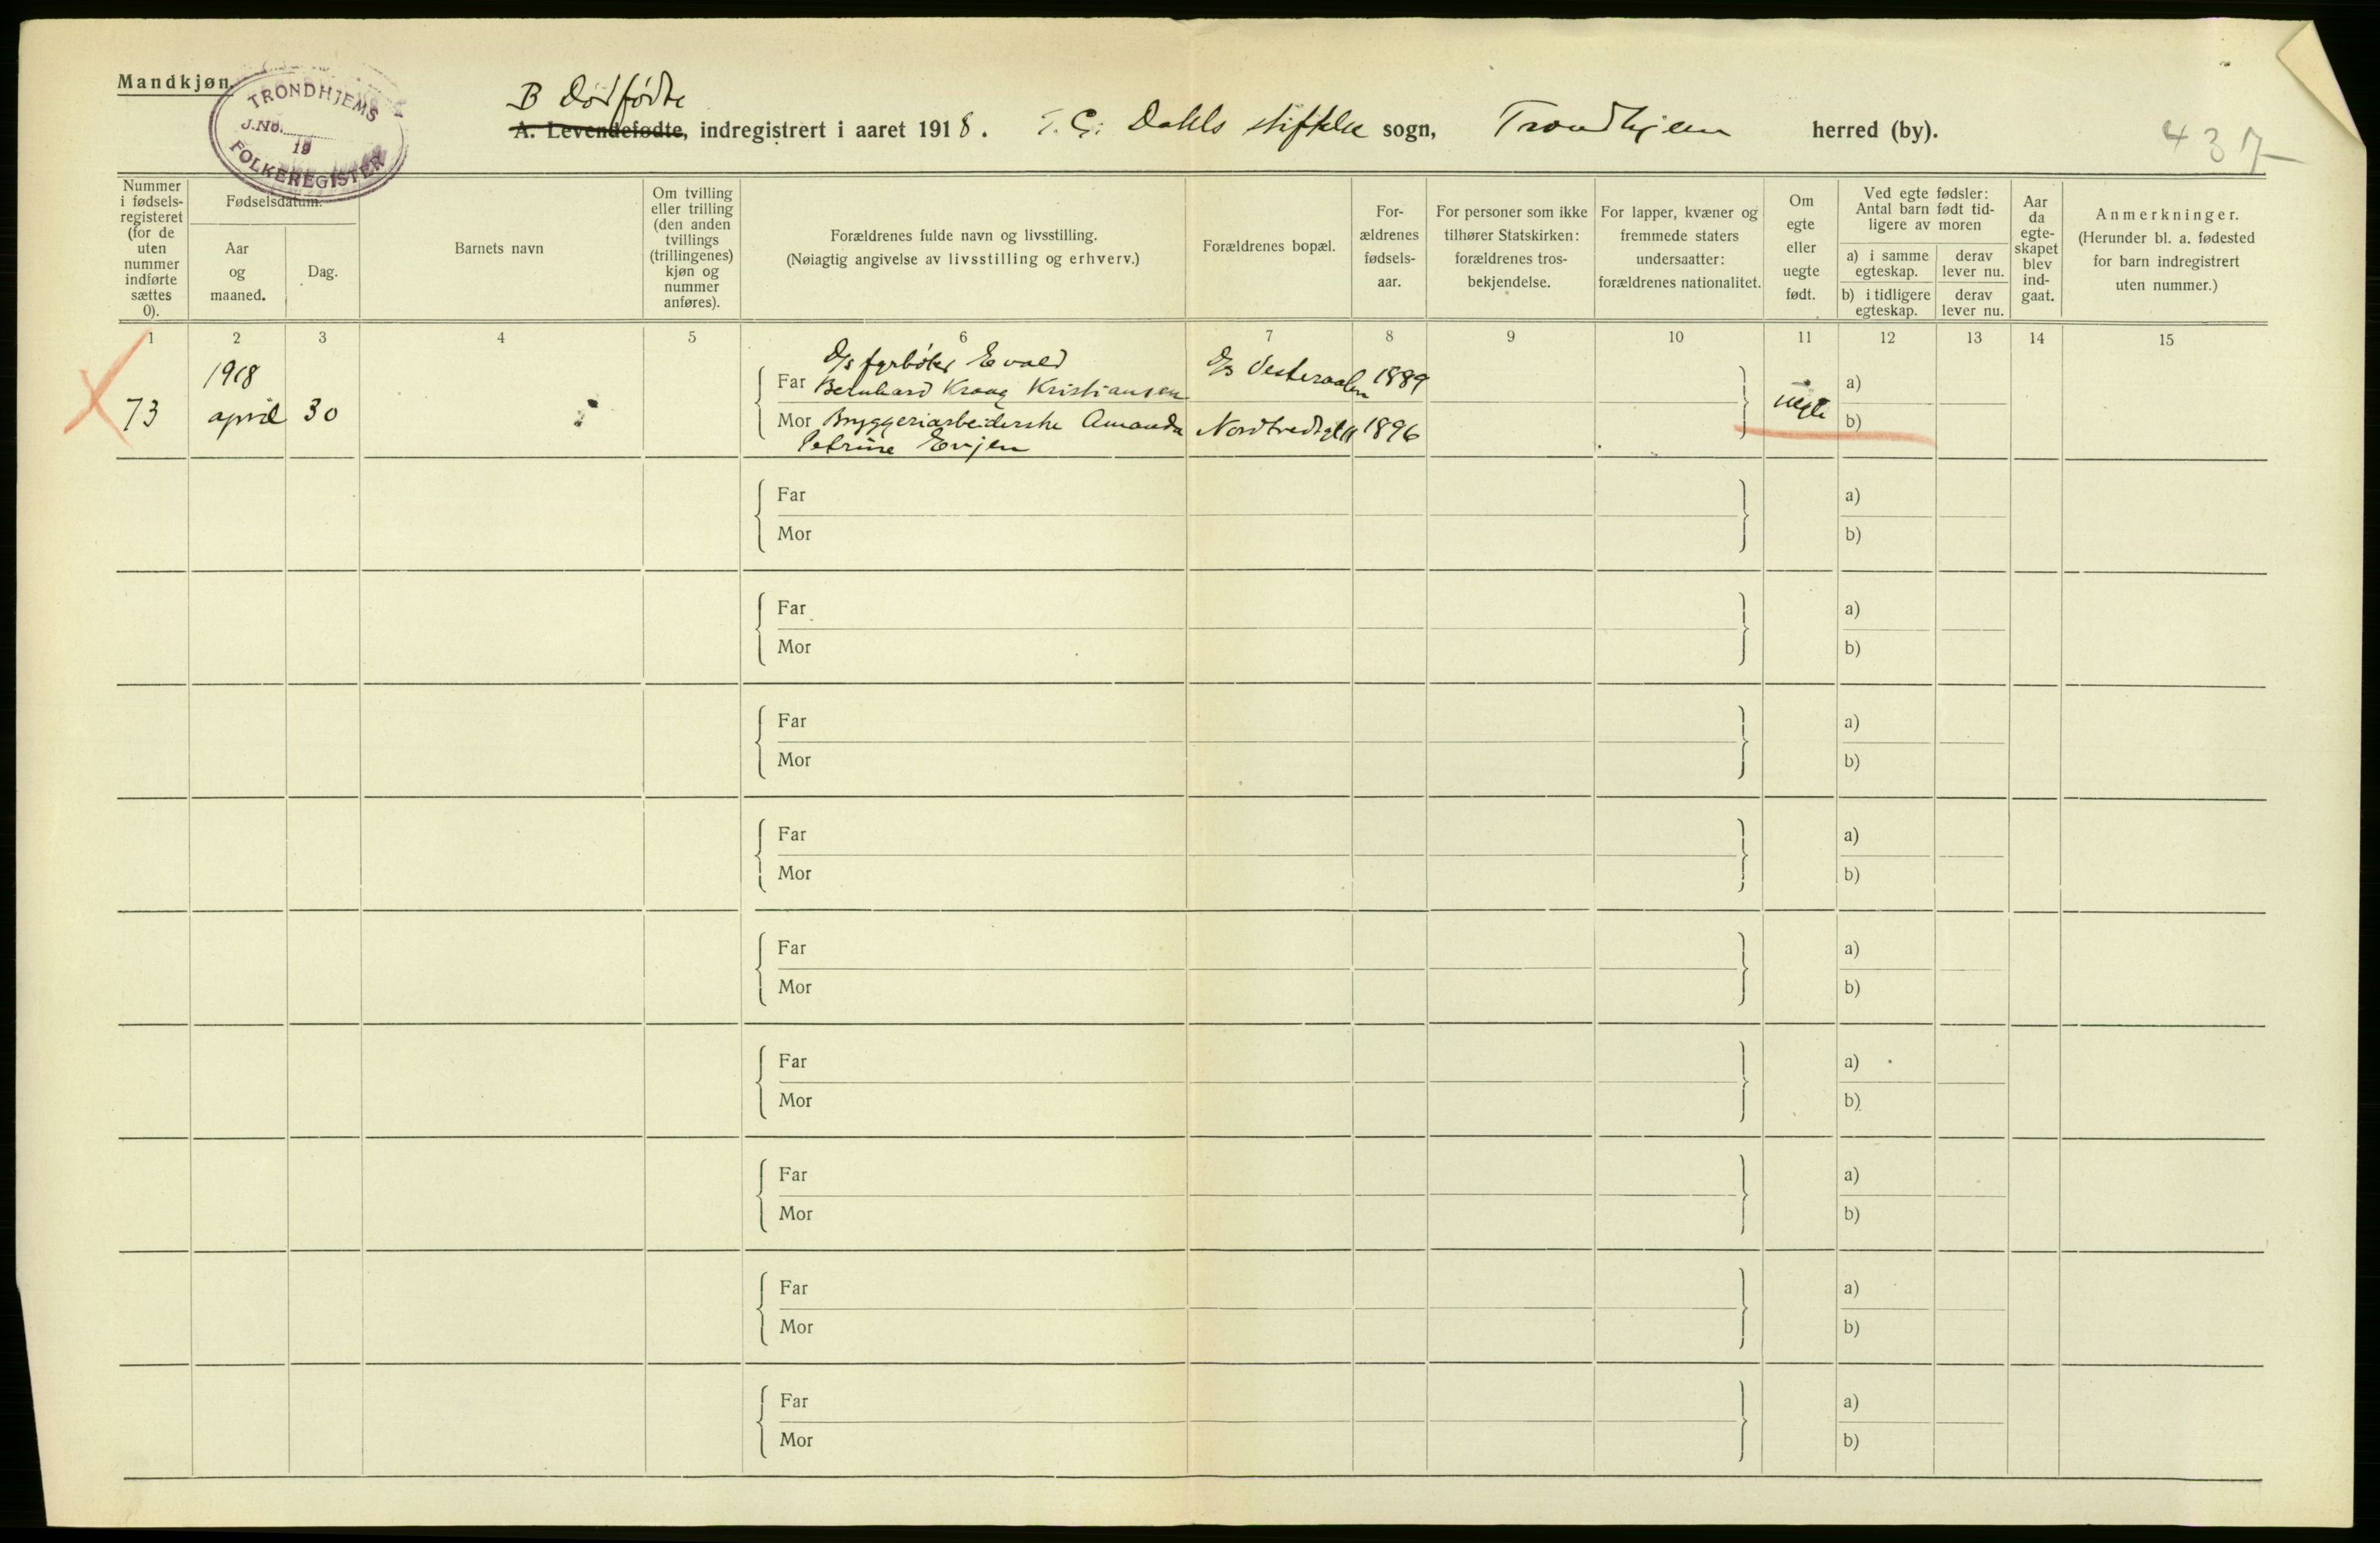 Mandkjøn.
TRONDHJEMS
J.No.
19
FOLKEREGISTER
B Dødfødte
A. Levendefødte, indregistrert i aaret 1918. Dahls stiftelse sogn, Trondhjem herred (by).
437
Nummer i fødsels-registeret (for de uten nummer indførte sættes 0).
Fødselsdatum.
Aar og maaned.
Dag.
Barnets navn
Om tvilling eller trilling (den anden tvillings (trillingenes) kjøn og nummer anføres).
Forældrenes fulde navn og livsstilling.
(Nøiagtig angivelse av livsstilling og erhverv.)
Forældrenes bopæl.
For-ældrenes fødsels-aar.
For personer som ikke tilhører Statskirken: forældrenes tros-bekjendelse.
For lapper, kvæner og fremmede staters undersaatter: forældrenes nationalitet.
Om egte eller uegte født.
Ved egte fødsler: Antal barn født tid-ligere av moren
a) i samme egteskap.
derav lever nu.
b) i tidligere egteskap.
derav lever nu.
Aar da egte-skapet blev ind-gaat.
Anmerkninger.
(Herunder bl. a. fødested for barn indregistrert uten nummer.)
1 2 3 4 5 6 7 8 9 10 11 12 13 14 15
D/s fyrbøter Evald
1918
Far Bernhard Krang Kristiansen D/s Vesteraalen 1889 a)
73 april 30 uegte
Mor Bryggeriarbeiderske Amanda 1896 b)
Petrine Evjen
Far a)
Mor b)
Far a)
Mor b)
Far a)
Mor b)
Far a)
Mor b)
Far a)
Mor b)
Far a)
Mor b)
Far a)
Mor b)
Far a)
Mor b)
Far a)
Mor b)